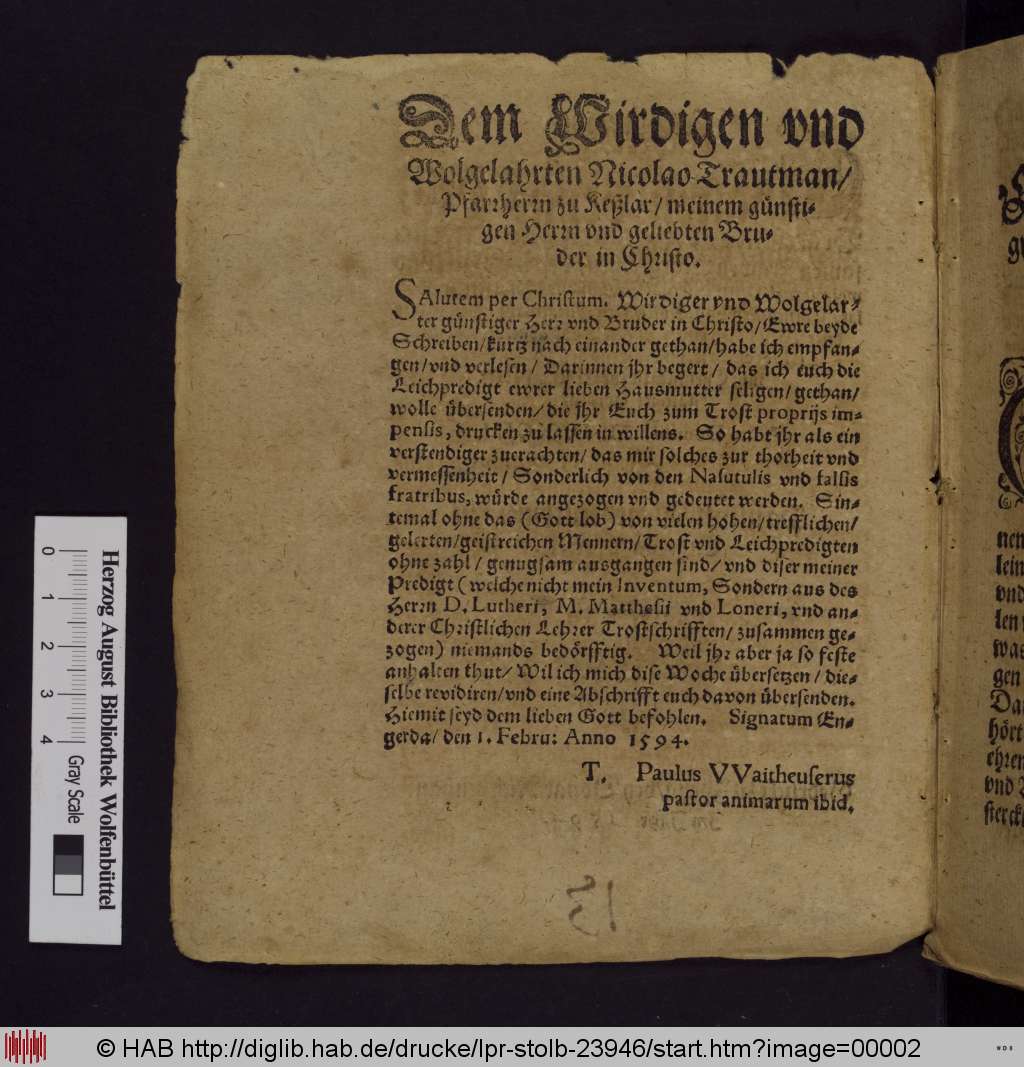 Dem Wirdigen vnd
Wolgelahrten Nicolao Trautman/
Pfarrherrn zu Keßlar/ meinem günsti-
gen Herrn vnd geliebten Bru-
der in Christo.
SAlutem per Christum. Wirdiger vnd Wolgelar-
ter günstiger Herr vnd Bruder in Christo/ Ewre beyde
Schreiben/ kurtz nach einander gethan/ habe ich empfan-
gen/ vnd verlesen/ Darinnen jhr begert/ das ich euch die
Leichpredigt ewrer lieben Hausmutter seligen/ gethan/
wolle übersenden/ die jhr Euch zum Trost proprijs im-
pensis, drucken zu lassen in willens. So habt jhr als ein
verstendiger zuerachten/ das mir solches zur thorheit vnd
vermessenheit/ Sonderlich von den Nasutulis vnd falsis
fratribus, würde angezogen vnd gedeutet werden. Sin-
temal ohne das (Gott lob) von vielen hohen/ trefflichen/
gelerten/ geistreichen Mennern/ Trost vnd Leichpredigten
ohne zahl/ genugsam ausgangen sind/ vnd diser meiner
Predigt (welche nicht mein Inventum, Sondern aus des
Herrn D. Lutheri, M. Matthesii vnd Loneri, vnd an-
derer Christlichen Lehrer Trostschrifften/ zusammen ge-
zogen) niemands bedörfftig. Weil jhr aber ja so feste
anhalten thut/ Wil ich mich dise Woche übersetzen/ die-
selbe revidiren/ vnd eine Abschrifft euch davon übersenden.
Hiemit seyd dem lieben Gott befohlen. Signatum En-
gerda/ den 1. Febru: Anno 1594.
T. Paulus VVaitheuserus
pastor animarum ibid.
13
nen
lein
vnd
len
was
gen
Da
hört
ehren
vnd
sterck
0 1 2 3 4
Herzog August Bibliothek Wolfenbüttel
Gray Scale
© HAB http://diglib.hab.de/drucke/lpr-stolb-23946/start.htm?image=00002